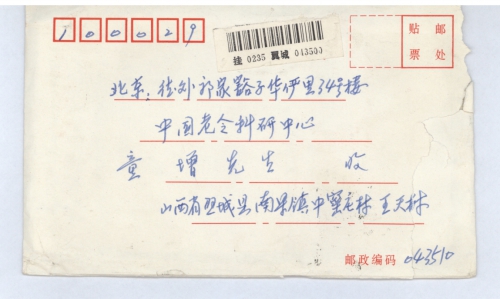 100029
挂 0235 翼城 043500
贴 邮
票 处
北京: 德外祁家豁子华严里34号楼
中国老令科研中心
童增先生 收
山西省翼城县南梁镇中 村 王天林
邮政编码 043510